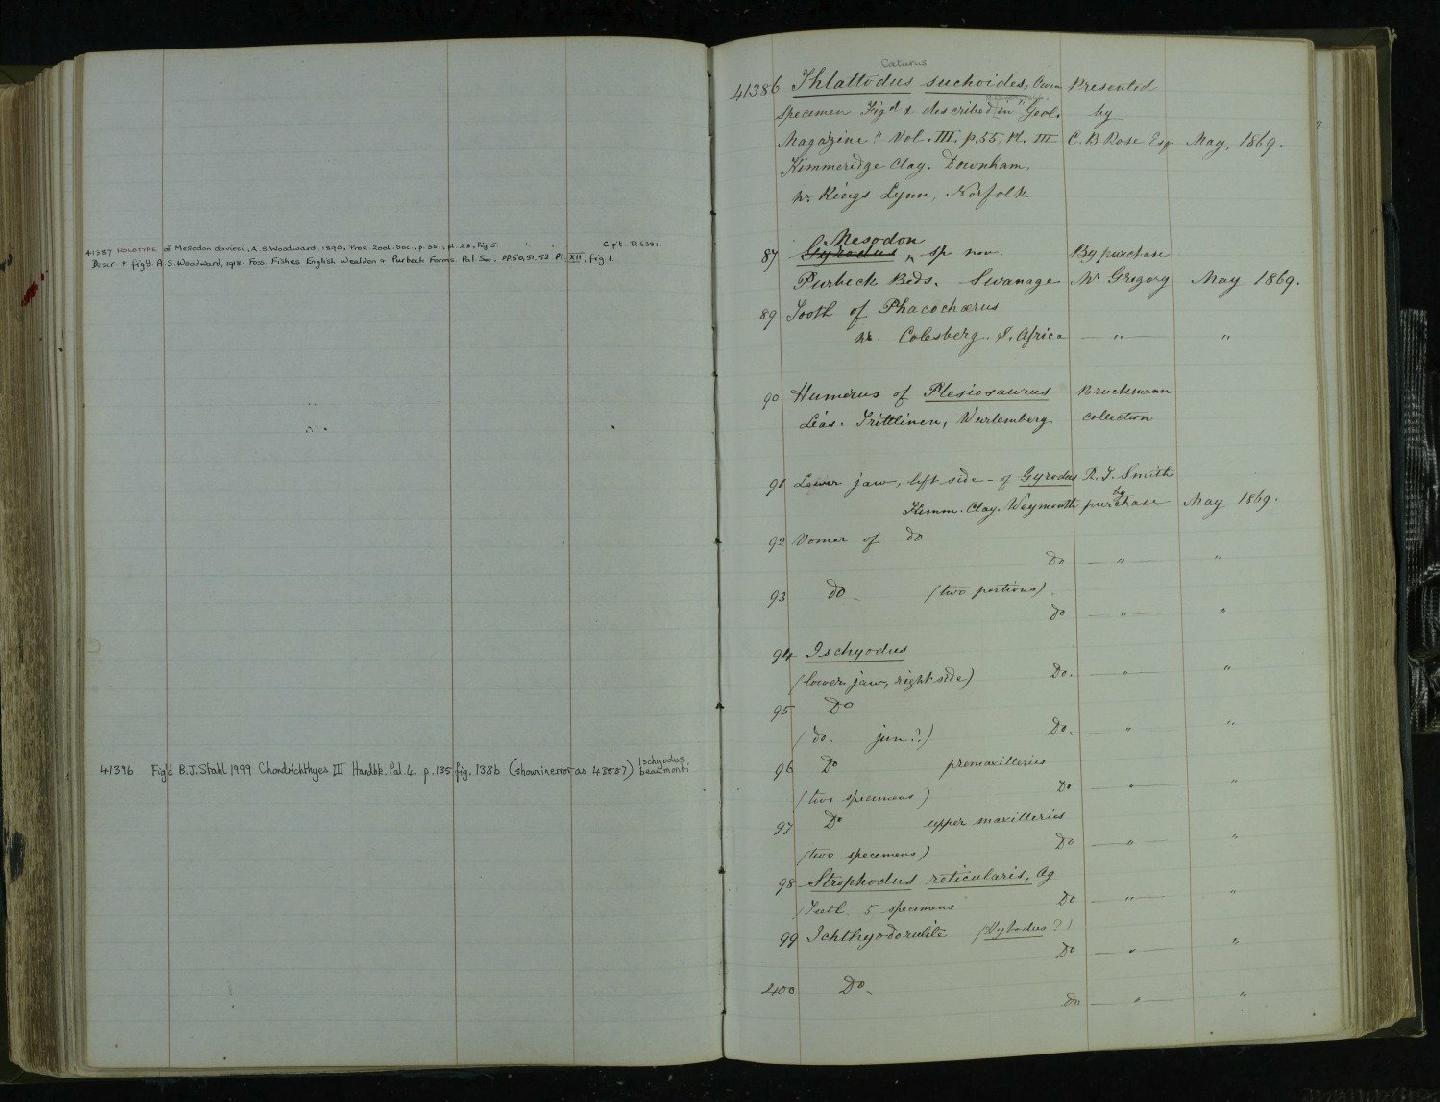 41387 HOLOTYPE of Mesodon daviesi, A. S. Woodward, 1890, Proc. Zool. Soc., p. , pl. , fig 5.
Descr + fig'd. A. S. Woodward, 1918. Foss. Fishes English Wealden & Purbeck Forms. Pal Soc. pp 50, 51, 52 Pl. XII, fig 1.
41396 Fig'd B.J. Stahl 1999 Chondrichthyes III Handbk. Pal. 4. p. 135 fig. 138b (shown in error as 43587) Ischyodus beaumonti
Caturus
41386 Thlattodus suchoides, Owen Presented
Specimen Fig'd & described in "Geol. by
Magazine" Vol. III. p. 55, Pl. III C. B Rose Esq May, 1869.
Kimmeridge Clay. Downham.
nr. Kings Lynn, Norfolk
Mesodon
87 Gyrodus ^ sp nov. By purchase
Purbeck Beds. Swanage Mr Gregory May 1869.
89 Tooth of Phacochœrus
nr Colesberg. S. Africa — " — "
90 Humerus of Plesiosaurus Bruckmann
Lias. Trittlinen, Wurtemberg collection
91 Lower jaw, left side - of Gyrodus R. J. Smith
Kimm. Clay. Weymouth by purchase May 1869.
92 Vomer of do
Do — " — "
93 do (two portions)
do — " — "
94 Ischyodus
(lower jaw, right side) Do. — " — "
95 Do
(do. jun?) Do. — " — "
96 Do premaxilleries
(two specimens) Do — " — "
97 Do upper maxilleries
(two specimens) Do — " — "
98 Strophodus reticularis, Ag
(Teeth. 5 specimens Do — " — "
99 Ichthyodorulite (Hybodus?)
Do — " — "
400 Do.
do — " — "